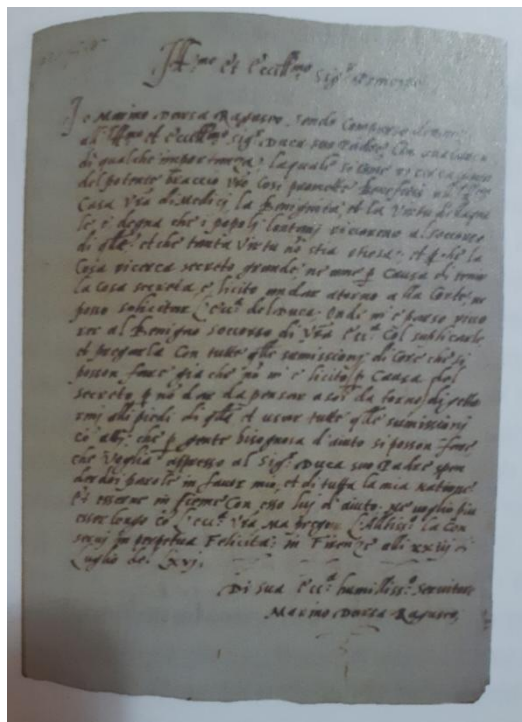 Ill.mo et Ecc.mo Sig.r Principe
Io Marino Darsa Raguseo, sendo comparso
all Ill.mo et Ecc.mo Sig.r Duca suo Padre, con
di qualche importanza, laquale si come
del potente braccio vro così promette benefitii
Casa vra di Medici la benignita, et la virtu di laqua
le, è degna che i popoli lontani ricoreno al socorso
di q.lla et che tanta virtu nõ stia otiosa, et p che la
Cosa ricerca secreto grande, ne a me p causa di tener
la cosa secreta è licito andar atorno a lla Corte ne
posso solicitar l'ecc.a del Duca. Onde m'è parso
rer al Benigno socorso di v.ra ecc.a Col suplicarle
et pregarla con tutte q.lle sumissioni di Core che si
posson fare già che nõ m'è licito p causa del
secreto p nõ dar da pensar a soi da torno, di
rmi alli piedi di q.lla et usar tutte q.lle sumissioni
cõ che p gente bisognosa d'aiuto si posson fare
che voglia appresso al Sig.r Duca suo Padre spen
der doi parole in favor mio, et di tutta la mia natione
et esserne insieme con esso lui d'aiuto. ne voglio piu
esser longo cõ l'ecc.a vra Ma pregon l'Altiss.o la con
servi in perpetua Felicità, in Firenze alli xxiij di
Luglio del Lxvj.
Di sua Ecc.a humilliss.o Servitore
Marino Darsa Raguseo,